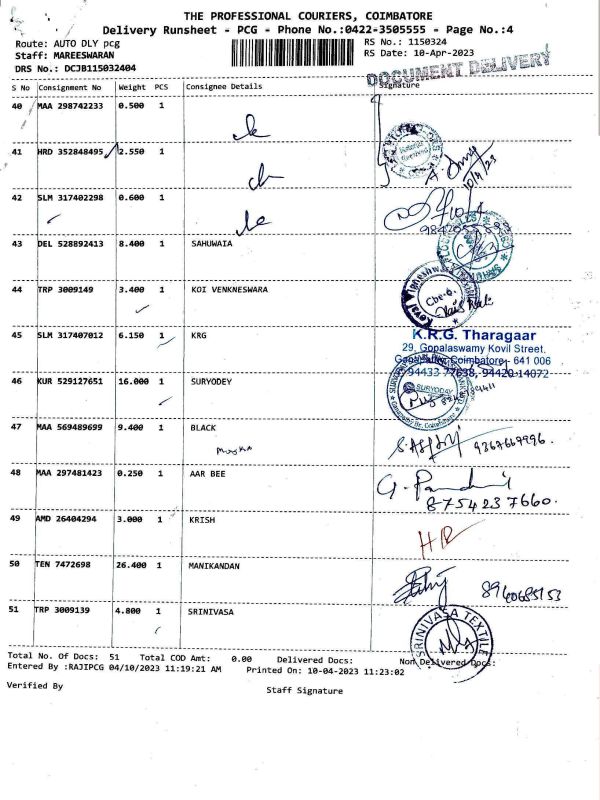 THE PROFESSIONAL COURIERS, COIMBATORE
Delivery Runsheet - PCG - Phone No.:0422-3505555 - Page No.:4
Route: AUTO DLY pcg
RS No.: 1150324
Staff: MAREESWARAN
RS Date: 10-Apr-2023
DRS No.: DCJB115032404
DOCUMENT DELIVERY
S No Consignment No Weight PCS Consignee Details Signature
40 MAA 298742233 0.500 1
41 HRD 352848495 2.550 1
10/4/23
42 SLM 317402298 0.600 1
43 DEL 528892413 8.400 1 SAHUWAIA
44 TRP 3009149 3.400 1 KOI VENKNESWARA
Cbe-6.
45 SLM 317407012 6.150 1 KRG
K.R.G. Tharagaar
29, Gopalaswamy Kovil Street,
Coimbatore - 641 006
94433 77638, 94420 14072
46 KUR 529127651 16.000 1 SURYODEY
SURYODAY
47 MAA 569489699 9.400 1 BLACK
9367667996.
48 MAA 297481423 0.250 1 AAR BEE
8754237660.
49 AMD 26404294 3.000 1 KRISH
HR
50 TEN 7472698 26.400 1 MANIKANDAN
51 TRP 3009139 4.800 1 SRINIVASA
SRINIVASA TEXTILE
Total No. Of Docs: 51 Total COD Amt: 0.00 Delivered Docs: Non Delivered Docs:
Entered By :RAJIPCG 04/10/2023 11:19:21 AM Printed On: 10-04-2023 11:23:02
Verified By
Staff Signature